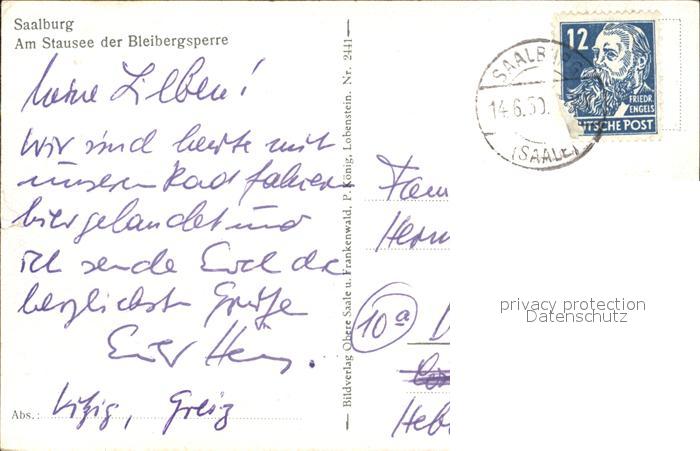 Saalburg
Am Stausee der Bleibergsperre
Meine Lieben!
Wir sind heute mit
unseren Radfahrern
hier gelandet und
ich sende Euch die
herzlichsten Grüße
Euer Heinz.
Abs.: Greiz
Bildverlag Obere Saale u. Frankenwald, P. König, Lobenstein, Nr. 2441
12
FRIEDR.
ENGELS
TSCHE POST
SAALBURG
14.6.50.
(SAALE)
Fam
Herm
10a
Heb
privacy protection
Datenschutz